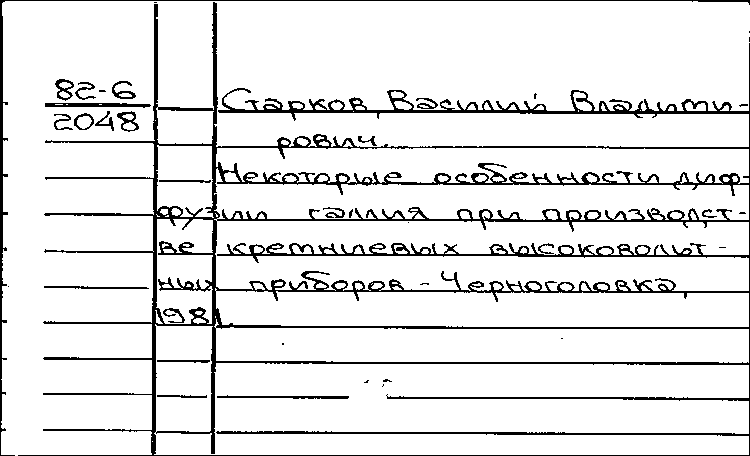 82-6
2048
Старков, Василий Владими-
рович.
Некоторые особенности диф-
фузии галлия при производст-
ве кремниевых высоковольт-
ных приборов - Черноголовка,
1981.